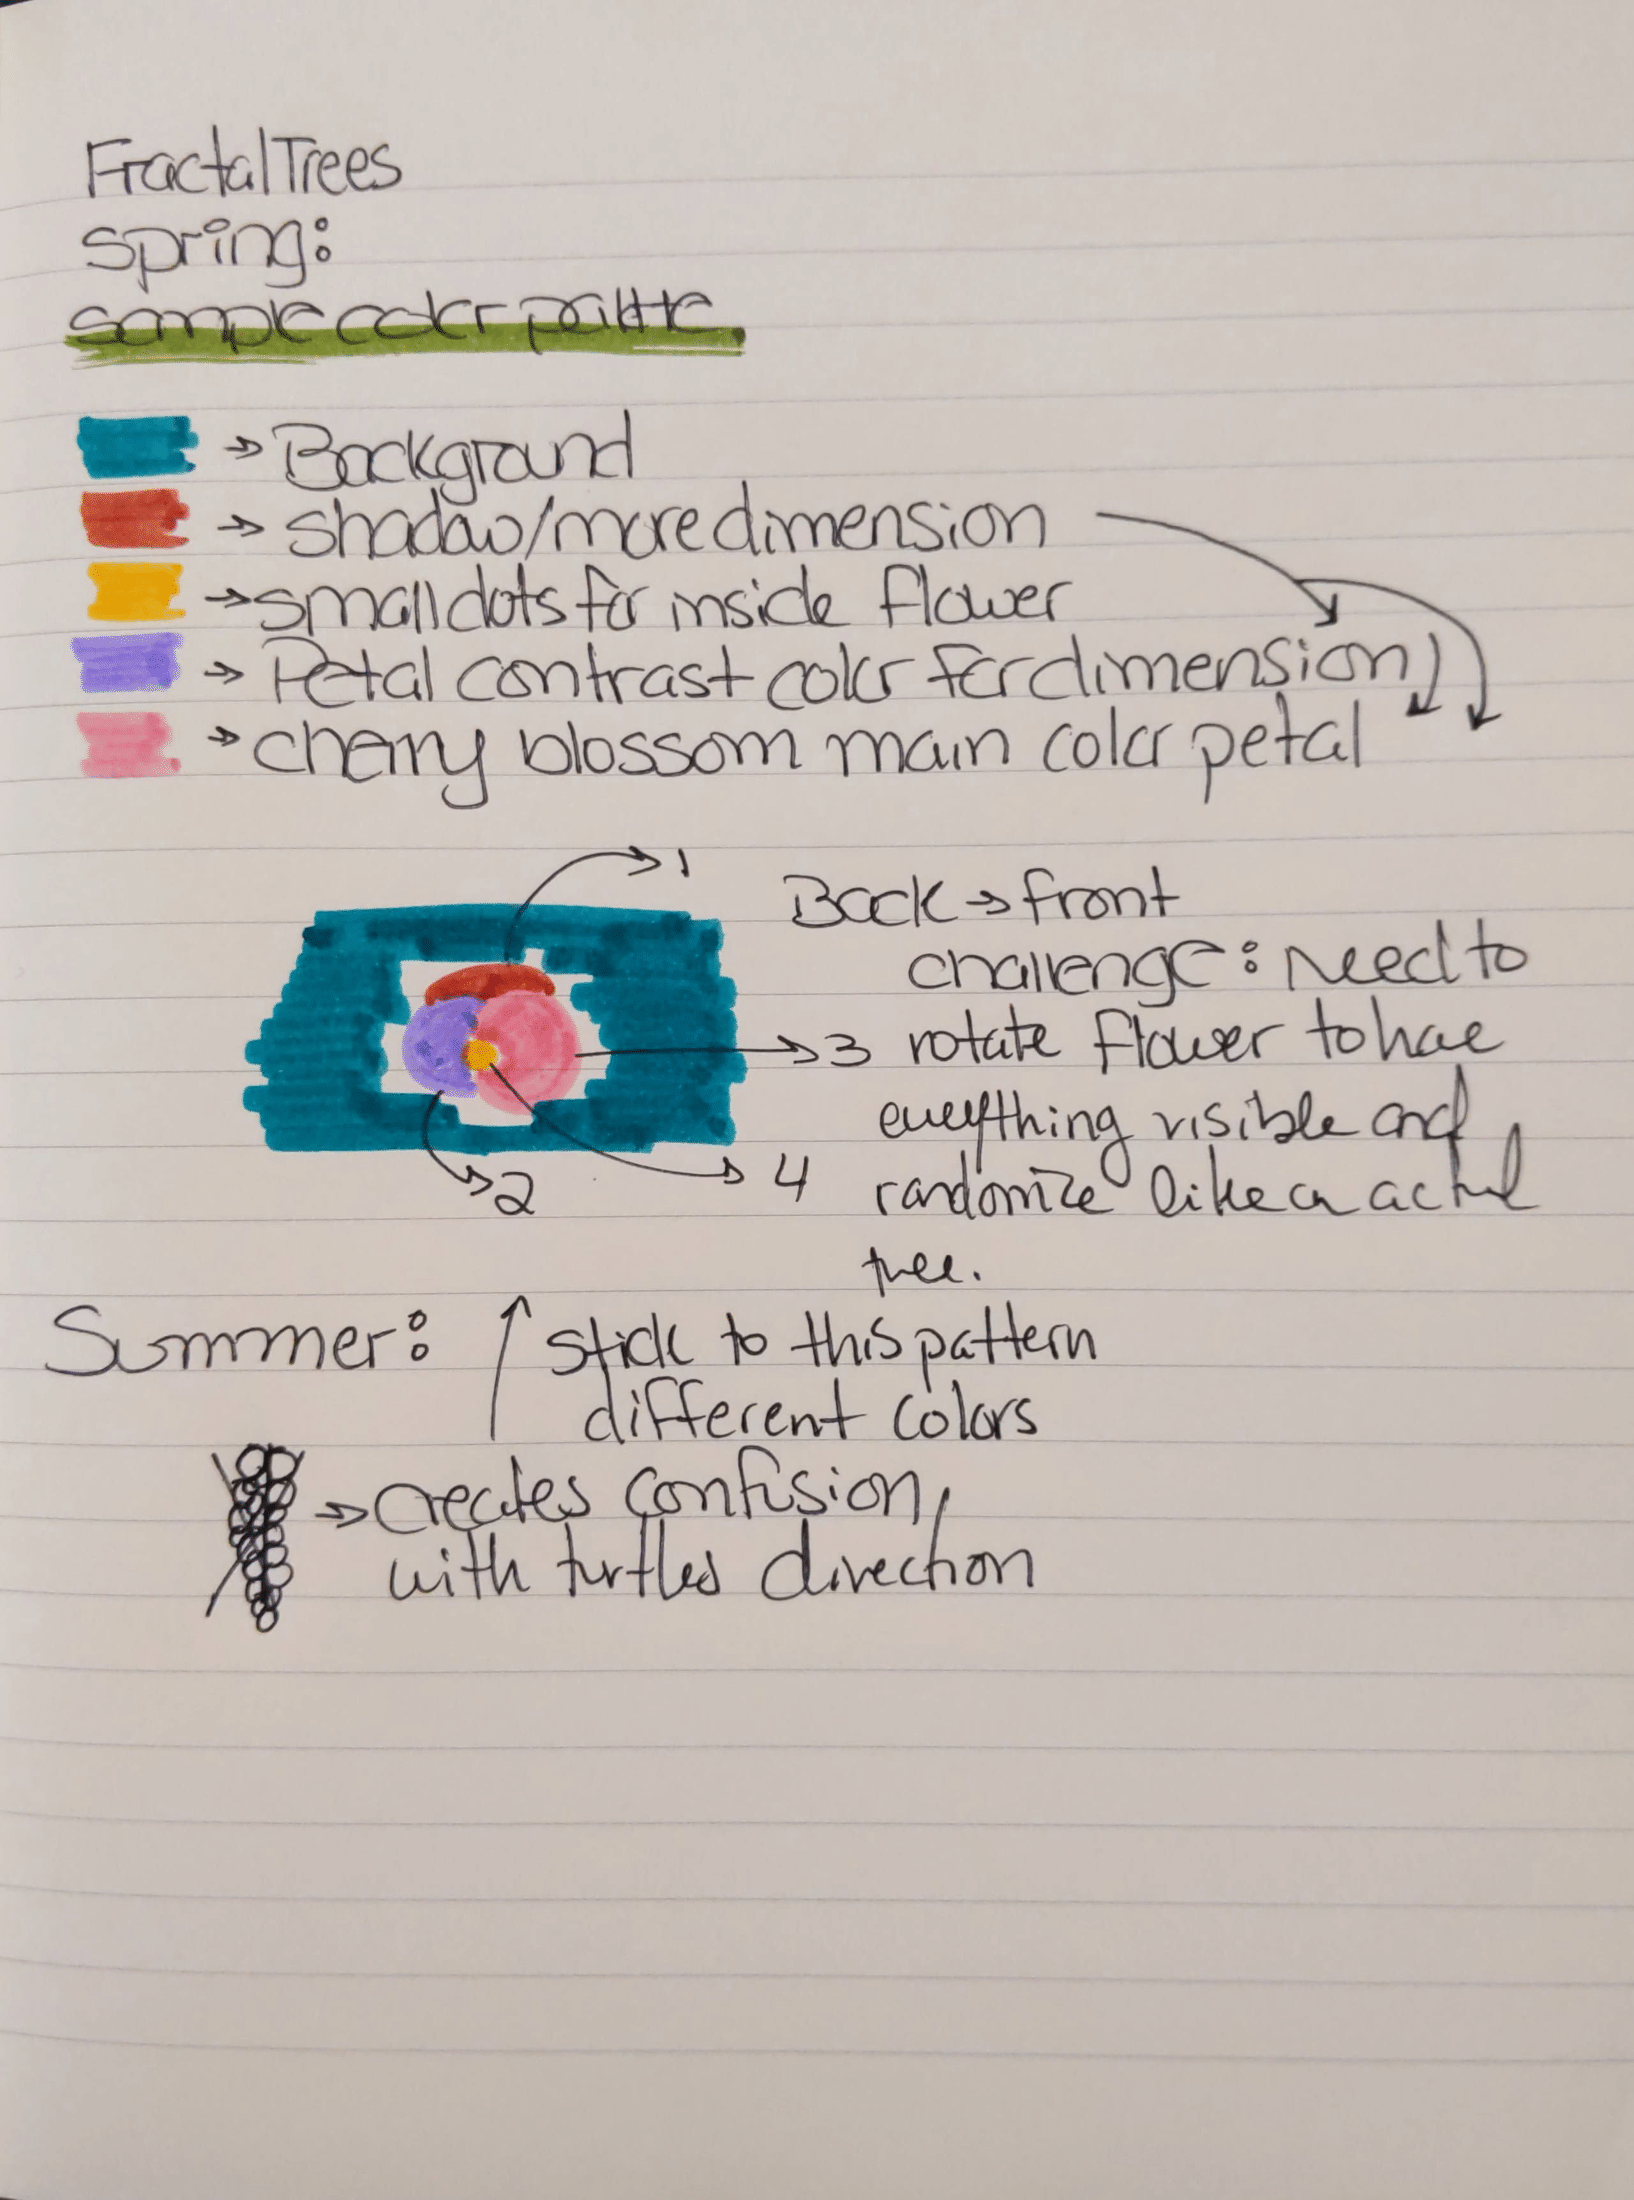 Fractal Trees
spring:
sample color palette.
→ Background
→ shadow/more dimension
→ small dots for inside flower
→ Petal contrast color for dimension
→ cherry blossom main color petal
1
Back → front
challenge: need to
3 rotate flower to have
everything visible and
4 randomize like a actual
2
tree.
Summer: ↑ stick to this pattern
different colors
→ creates confusion
with turtles direction